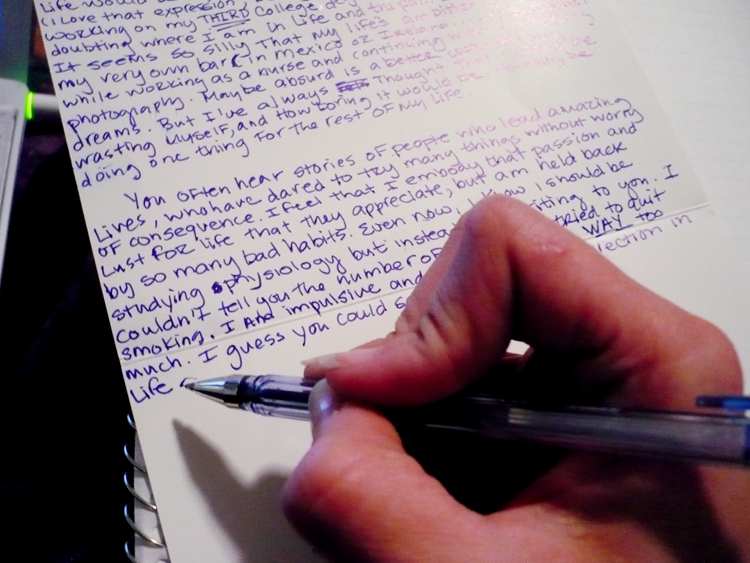 Life would
(I Love that expression
working on my THIRD College de
doubting where I am in Life and
It seems so silly That my life's ambition
my very own bar in Mexico or Ireland
while working as a nurse and continuing
photography. Maybe absurd is a better
dreams. But I've always Thought
wasting Myself, and How boring it would be
doing one thing for the rest of My Life
You often hear stories of people who lead amazing
Lives, who have dared to try many things without worry
of consequence. I feel that I embody that passion and
Lust for Life that they appreciate, but am held back
by so many bad habits. Even now, I know I should be
studying physiology but instea iting to you. I
couldn't tell you the number of tried to quit
smoking. I And impulsive and WAY too
much. I guess you could s rection in
Life